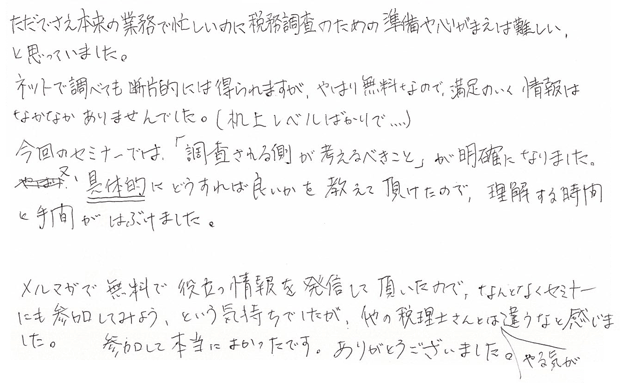 ただでさえ本来の業務で忙しいのに税務調査のための準備や心がまえは難しい、
と思っていました。
ネットで調べても断片的には得られますが、やはり無料なので、満足のいく情報は
なかなかありませんでした。(机上レベルばかりで....)
今回のセミナーでは、「調査される側が考えるべきこと」が明確になりました。
又、具体的にどうすれば良いかを教えて頂けたので、理解する時間
と手間がはぶけました。
メルマガで無料で役立つ情報を発信して頂いたので、なんとなくセミナー
にも参加してみよう、という気持ちでしたが、他の税理士さんとは違うなと感じま
した。 参加して本当によかったです。ありがとうございました。
やる気が